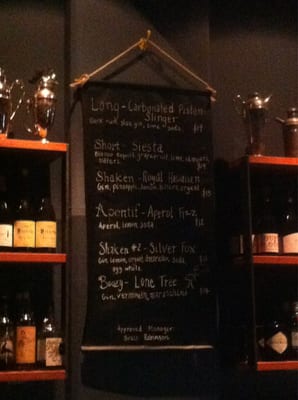 Long - Carbonated Piston
Slinger
Dark rum, sloe gin, lime + soda $19
Short - Siesta
grapefruit, lime,
bitters
Shaken - Royal Hawaiian
Gin, pineapple, lemon, bitters, orgeat
Aperitif - Aperol Fizz
Aperol, lemon, soda
Shaken #2 - Silver Fox
Gin, lemon, orgeat,
egg white
Boozy - Lone Tree
Gin, vermouth, maraschino
Approved Manager: